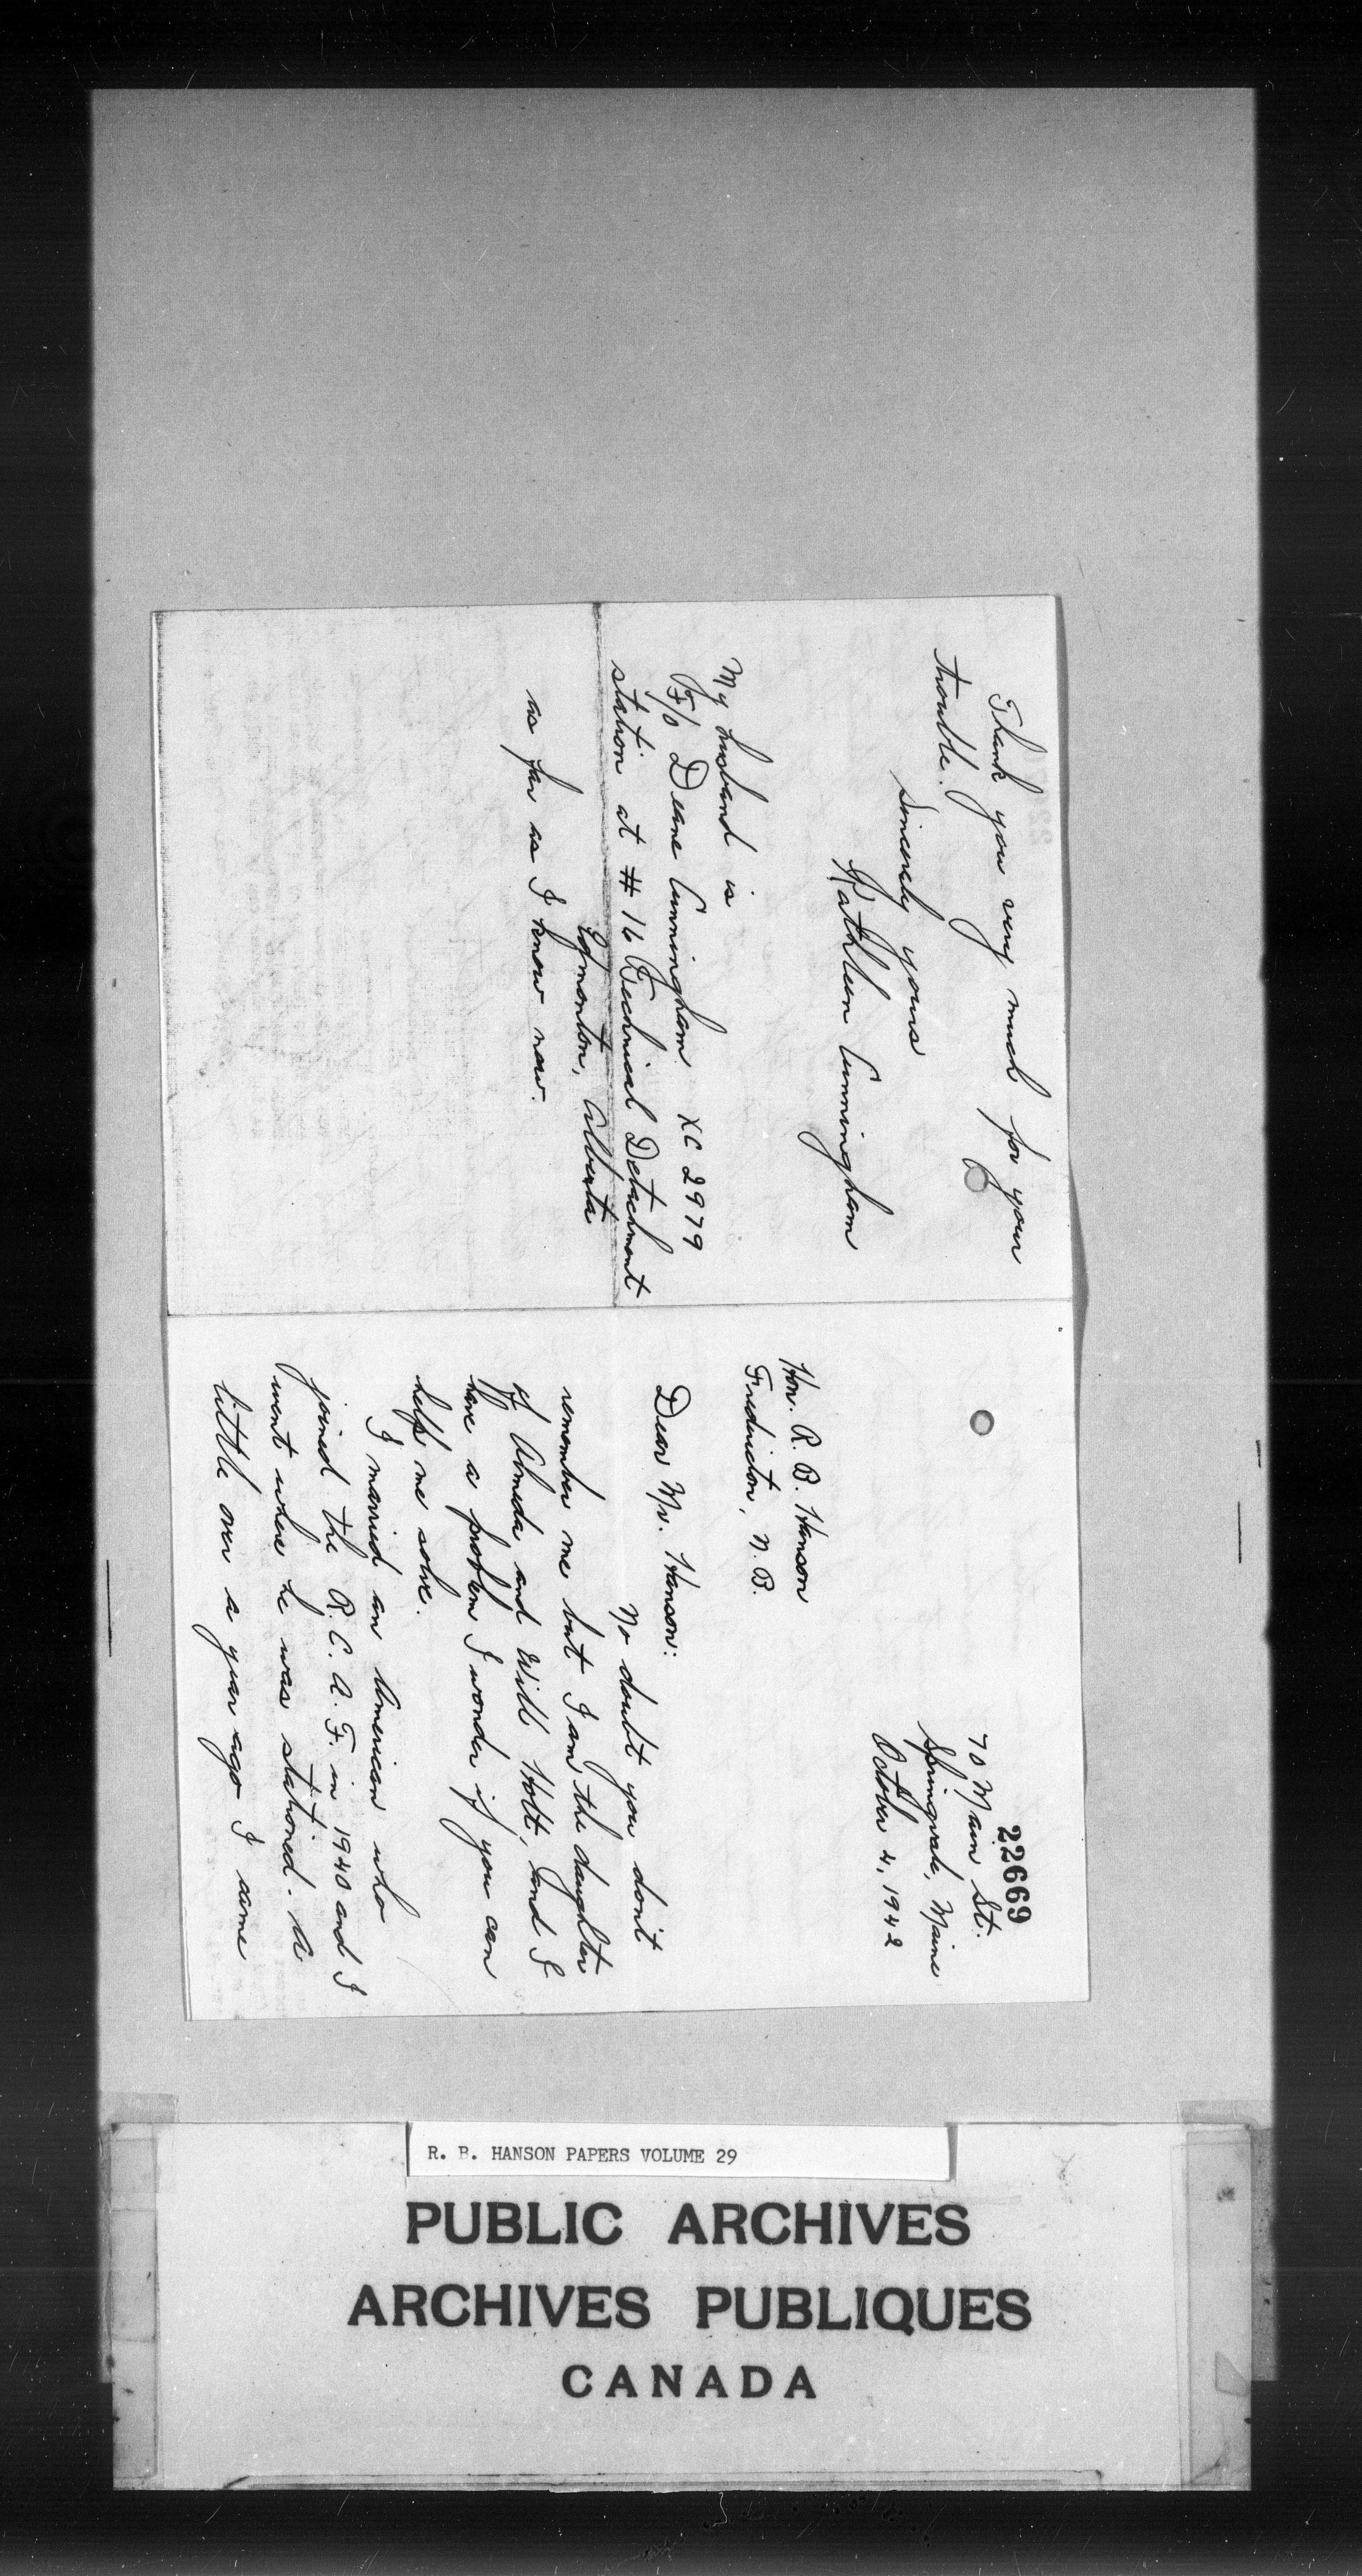 22669
70 Main St.
Springvale, Maine
October 4, 1942
Hon. R. B. Hanson
Fredericton, N. B.
Dear Mr. Hanson:
No doubt you don't
remember me but I am the daughter
of Almeda and Will Holt, and I
have a problem I wonder if you can
help me solve.
I married an American who
joined the R. C. A. F. in 1940 and I
went where he was stationed. A
little over a year ago I came
Thank you very much for your
trouble.
Sincerely yours
Kathleen Cunningham
My husband is
F/O Deane Cunningham XC 2979
station at # 16 Technical Detachment
Edmonton, Alberta
as far as I know now.
R. B. HANSON PAPERS VOLUME 29
PUBLIC ARCHIVES
ARCHIVES PUBLIQUES
CANADA